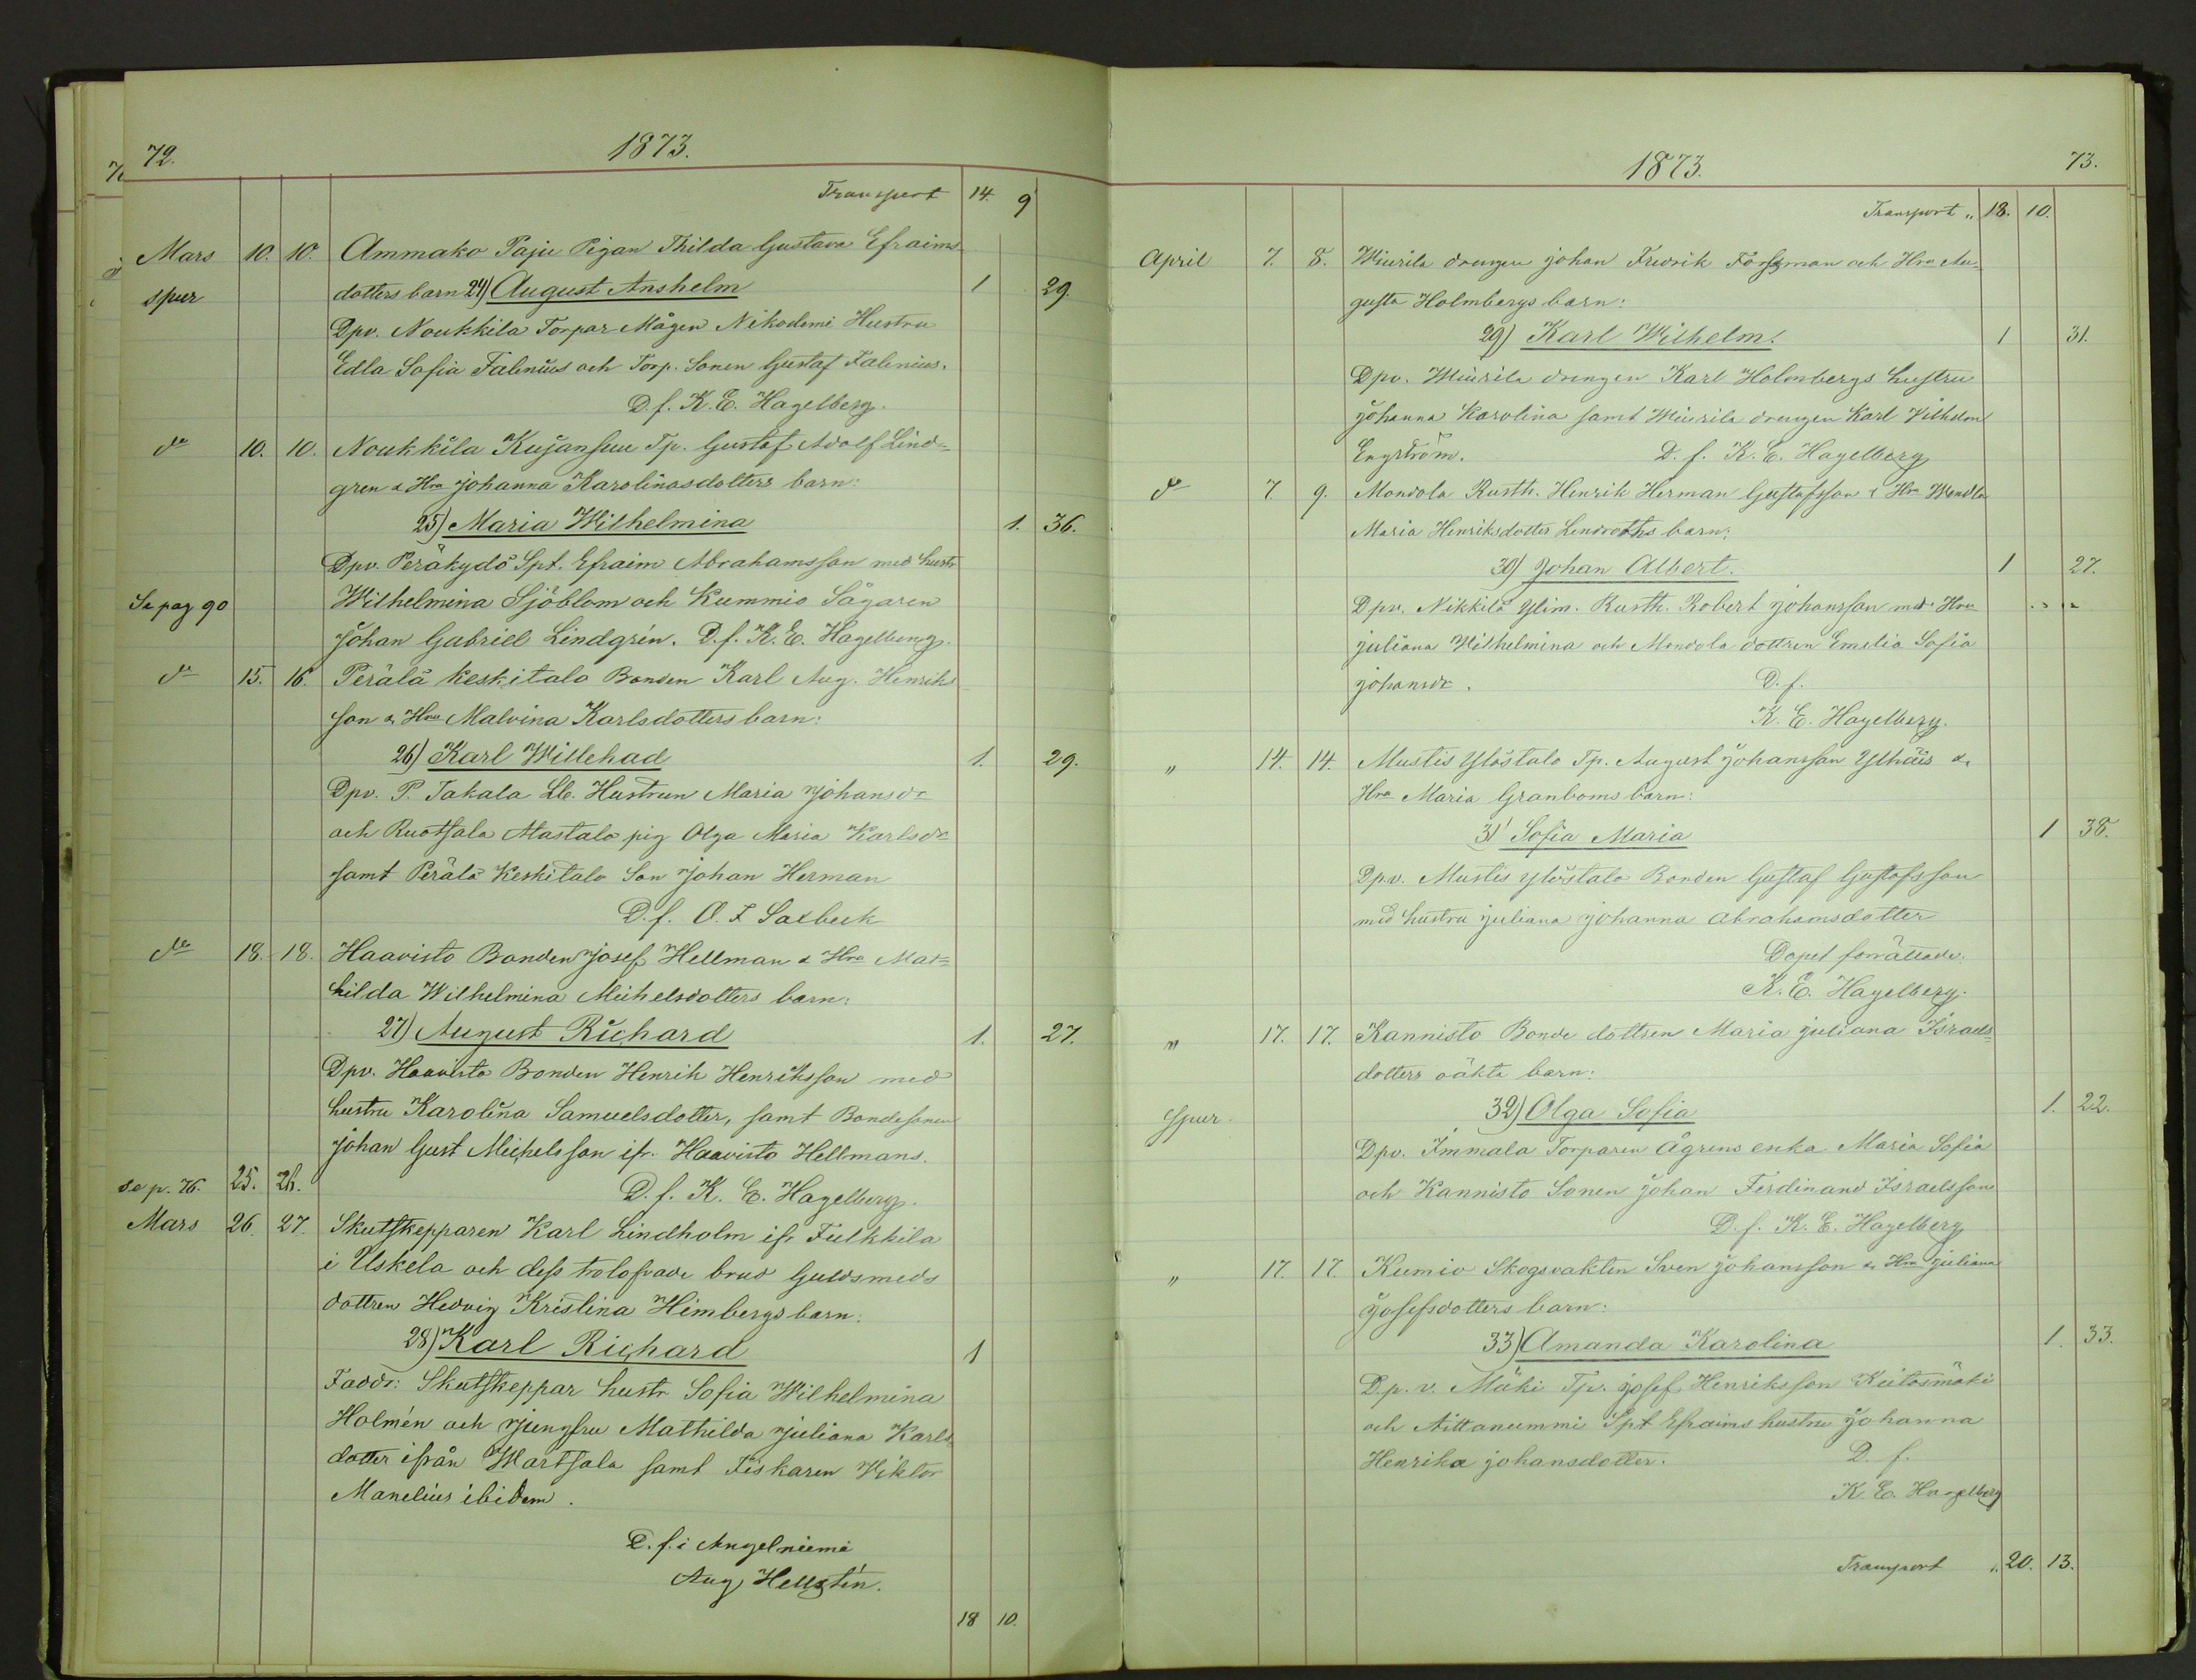 72. 1873.
Transport 14. 9
Mars 10. 10. Ammako Paju Pigan Thilda Gustava Efraims-
spur dotters barn 24) August Anshelm 1 29.
Dpv. Noukkila Torpar Mågen Nikodemi Hustru
Edla Sofia Falenius och Torp. Sonen Gustaf Falenius.
D. f. K. E. Hagelberg.
do 10. 10. Noukkila Kujansuu Tp. Gustaf Adolf Lind=
gren & Hru Johanna Karolinasdotters barn:
25) Maria Wilhelmina 1. 36.
Dpv. Peräkydö Spt. Efraim Abrahamsson med hustr
Se pag 90 Wilhelmina Sjöblom och Kummio Sågaren
Johan Gabriel Lindgrén. D. f. K. E. Hagelberg.
do 15. 16. Perälä Keskitalo Bonden Karl Aug. Henriks
son & Hru Malvina Karlsdotters barn:
26) Karl Willehad 1. 29.
Dpv. P. Takala Lb. Hustrun Maria Johansdr
och Ruotsala Alastalo pig Olga Maria Karlsdr
samt Perälä Keskitalo Son Johan Herman
D. f. O. F Saxbeck
do 18. 18. Haavisto Bonden Josef Hellman & Hru Mat=
hilda Wilhelmina Michelsdotters barn:
27) August Richard 1. 27.
Dpv. Haavisto Bonden Henrik Henriksson med
hustru Karolina Samuelsdotter, samt Bondesonen
Johan Gust Michelsson ifr. Haavisto Hellmans.
se p. 76. 25. 26. D. f. K. E. Hagelberg.
Mars 26. 27. Skutskepparen Karl Lindholm ifr Fulkkila
i Uskela och dess trolofvade brud Guldsmeds
dottren Hedvig Kristina Himbergs barn:
28) Karl Richard 1
Faddr: Skutskeppar hustr Sofia Wilhelmina
Holmén och Jungfru Mathilda Juliana Karls
dotter ifrån Wartsala samt Fiskaren Viktor
Manelius ibidem.
D. f. i Angelniemi
Aug Hellstén.
18 10.
1873. 73.
Transport " 18. 10.
April 7. 8. Wiurila drengen Johan Fredrik Forssman och Hru Au-
gusta Holmbergs barn:
29) Karl Wilhelm. 1 31.
Dpv. Wiurila drengen Karl Holmbergs hustru
Johanna Karolina samt Wiurila drengen Karl Vilhelm
Engström. D. f. K. E. Hagelberg
do 7. 9. Mondola Rusth. Henrik Herman Gustafsson & Hru Wendla
Maria Henriksdotter Lendroths barn:
30) Johan Albert. 1 27.
Dpv. Nikkilä Ylim. Rusth. Robert Johansson med Hru
Juliana Wilhelmina och Mondola dottren Emelia Sofia
Johansdr. D. f.
K. E. Hagelberg.
" 14. 14. Mustis Ylöstalo Tp. August Johansson Ylhäis &
Hru Maria Granboms barn:
31) Sofia Maria 1 38.
Dpv. Mustis Ylöstalo Bonden Gustaf Gustafsson
med hustru Juliana Johanna Abrahamsdotter
Dopet forrättade:
K. E. Hagelberg.
" 17. 17. Kannisto Bonde dottren Maria Juliana Israels=
dotters oäkta barn:
Spur. 32) Olga Sofia 1. 22.
Dpv. Immala Torparen Ågrens enka Maria Sofia
och Kannisto Sonen Johan Ferdinand Israelsson
D. f. K. E. Hagelberg
" 17. 17. Kumio Skogsvakten Sven Johansson & Hru Juliana
Josefsdotters barn:
33) Amanda Karolina 1. 33.
D.p.v. Mäki Tp. Josef Henriksson Keitasmäki
och Aittanummi Spt Efraims hustru Johanna
Henrika Johansdotter. D. f.
K. E. Hagelberg
Transport " 20. 13.